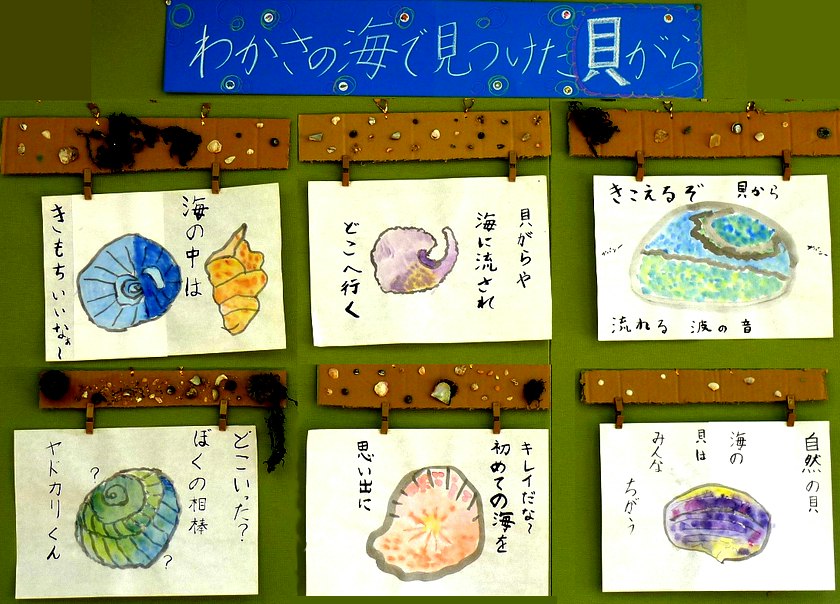 わかさの海で見つけた貝がら
海の中は
きもちいいなぁ～
貝がらや
海に流され
どこへ行く
きこえるぞ 貝から
ザバーン
流れる 波の音
どこいった?
ぼくの相棒
ヤドカリくん
?
?
キレイだな～
初めての海を
思い出に
自然の貝
海の
貝は
みんな
ちがう